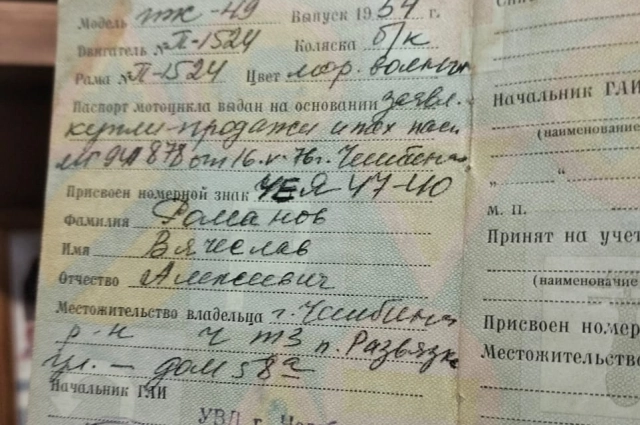 Модель иж-49 Выпуск 1954 г.
Двигатель № П-1524 Коляска б/к
Рама № П-1524 Цвет
Паспорт мотоцикла выдан на основании заявл.
купли-продажи и тех пасп
от 16.V.76г. Челябинск
Присвоен номерной знак ЧЕЯ 47-40
Фамилия Романов
Имя Вячеслав
Отчество Алексеевич
Местожительство владельца г. Челябинск
р-н ЧТЗ п. Развязка
ул. — дом 58а
Начальник ГАИ
УВД г.
Начальник ГАИ
(наименование
„ “
М. П.
Принят на учет
(наименование
Присвоен номер
Местожительство